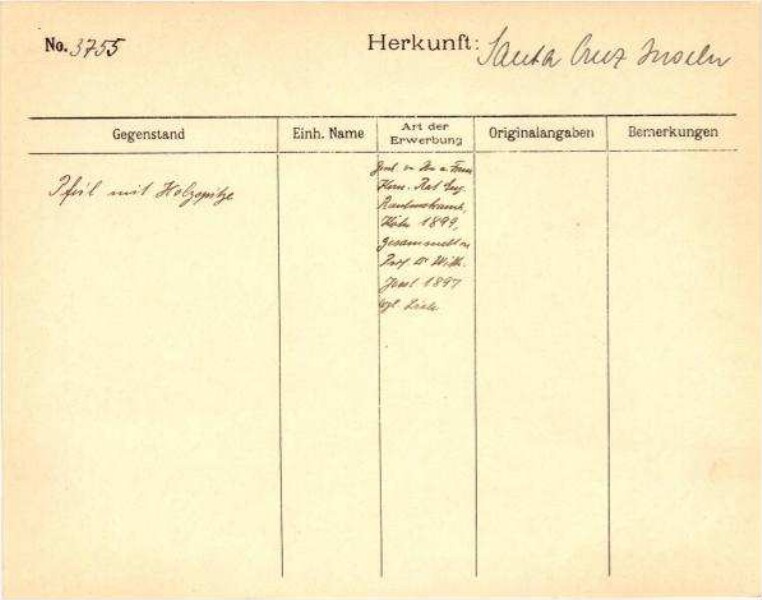 No. 3755
Herkunft: Santa Cruz Inseln
Gegenstand
Einh. Name
Art der
Erwerbung
Originalangaben
Bemerkungen
Pfeil mit Holzspitze
Gesch. v. Hr. u. Frau
Rat Eug.
Rautenstrauch,
1899,
gesammelt v.
Prof. Dr. Wilh.
Joest 1897
vgl. Liste